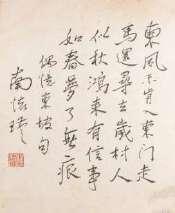 東風未肯入東门走
馬還尋去歲村人
似秋鴻來有信事
如春夢了無痕
偶憶東坡句
南懷瑾